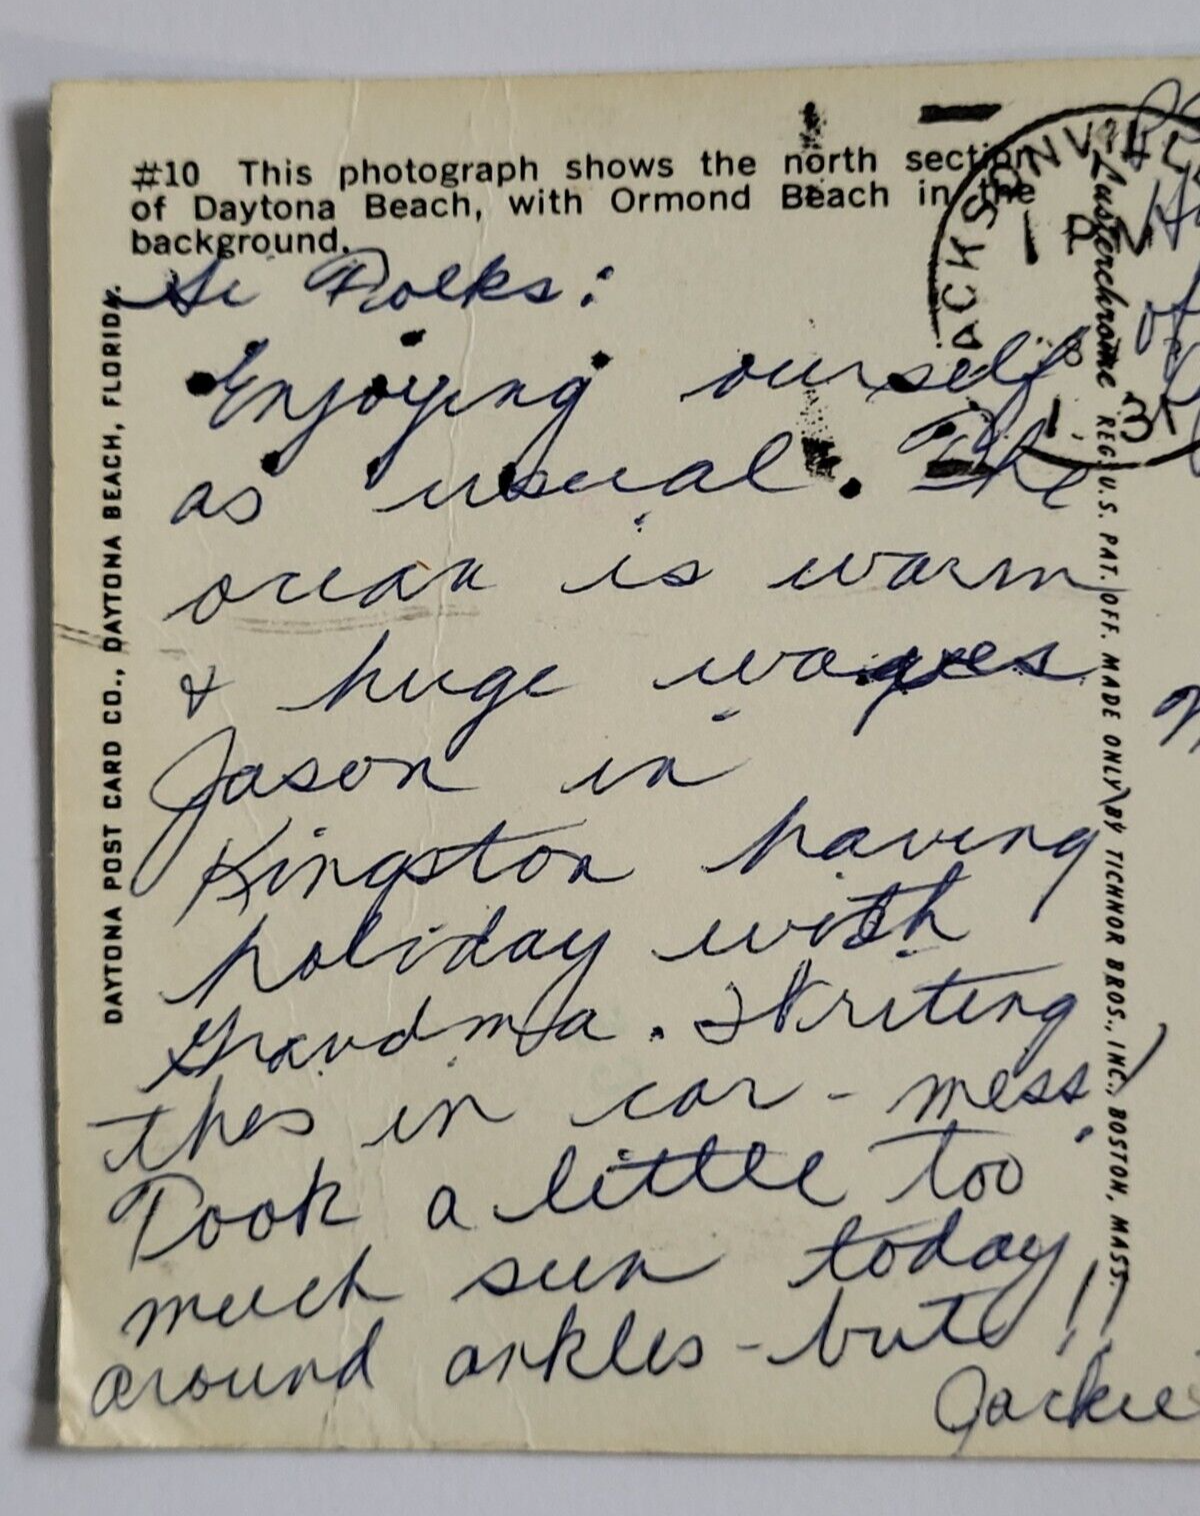 #10 This photograph shows the north section
of Daytona Beach, with Ormond Beach in the
background.
Hi Folks:
Enjoying ourself
as usual. The
ocean is warm
& huge waves
Jason in
Kingston having
holiday with
Grandma. Writing
this in car - mess!
Took a little too
much sun today
around ankles - but!!
Jackie
DAYTONA POST CARD CO., DAYTONA BEACH, FLORIDA.
Lusterchrome REG. U.S. PAT. OFF. MADE ONLY BY TICHNOR BROS., INC., BOSTON, MASS.
of